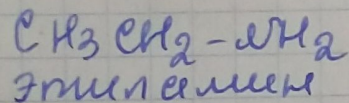 CH3 CH2-NH2
этиламин